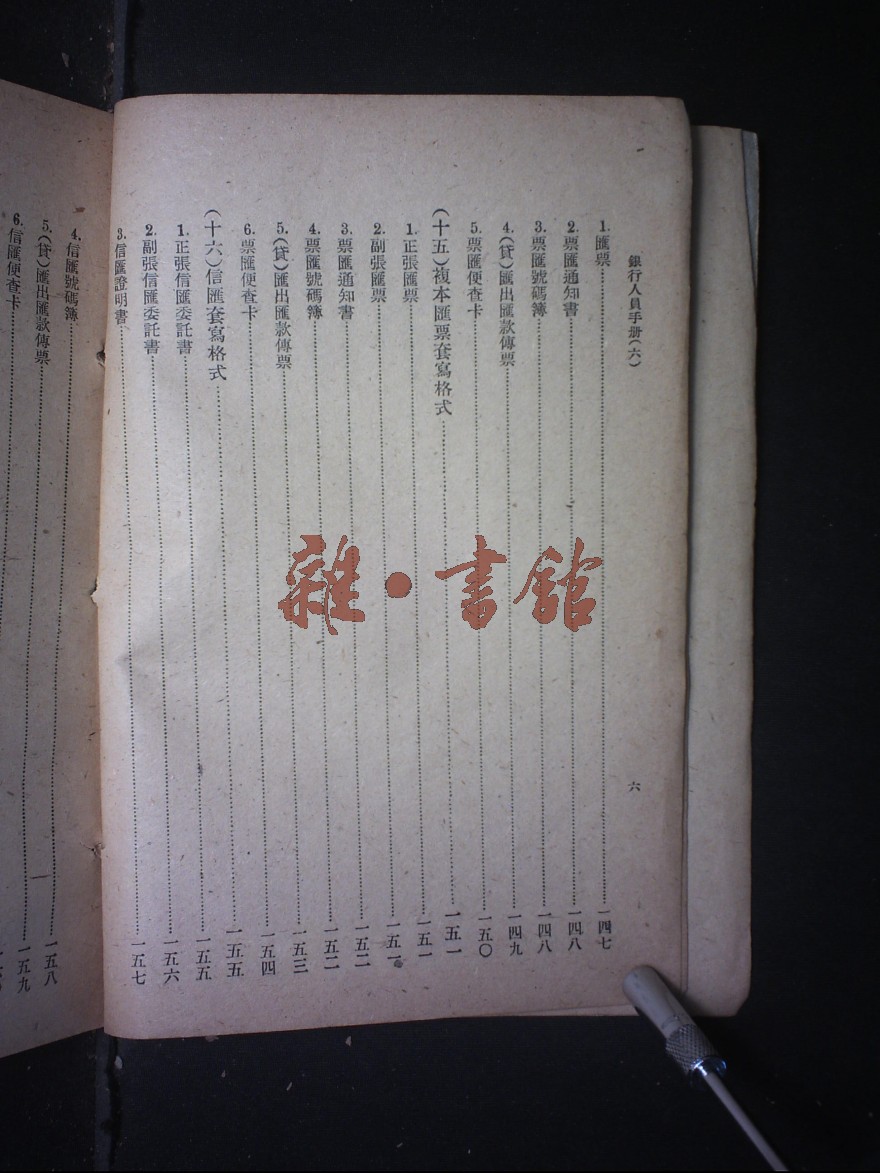 銀行人員手册(六)
六
1.匯票 一四七
2.票匯通知書 一四八
3.票匯號碼簿 一四八
4.(貸)匯出匯款傳票 一四九
5.票匯便查卡 一五〇
(十五)複本匯票套寫格式 一五一
1.正張匯票 一五一
2.副張匯票 一五一
3.票匯通知書 一五二
4.票匯號碼簿 一五二
5.(貸)匯出匯款傳票 一五三
6.票匯便查卡 一五四
(十六)信匯套寫格式 一五五
1.正張信匯委託書 一五五
2.副張信匯委託書 一五六
3.信匯證明書 一五七
4.信匯號碼簿 一五八
5.(貸)匯出匯款傳票 一五九
6.信匯便查卡
雜·書館